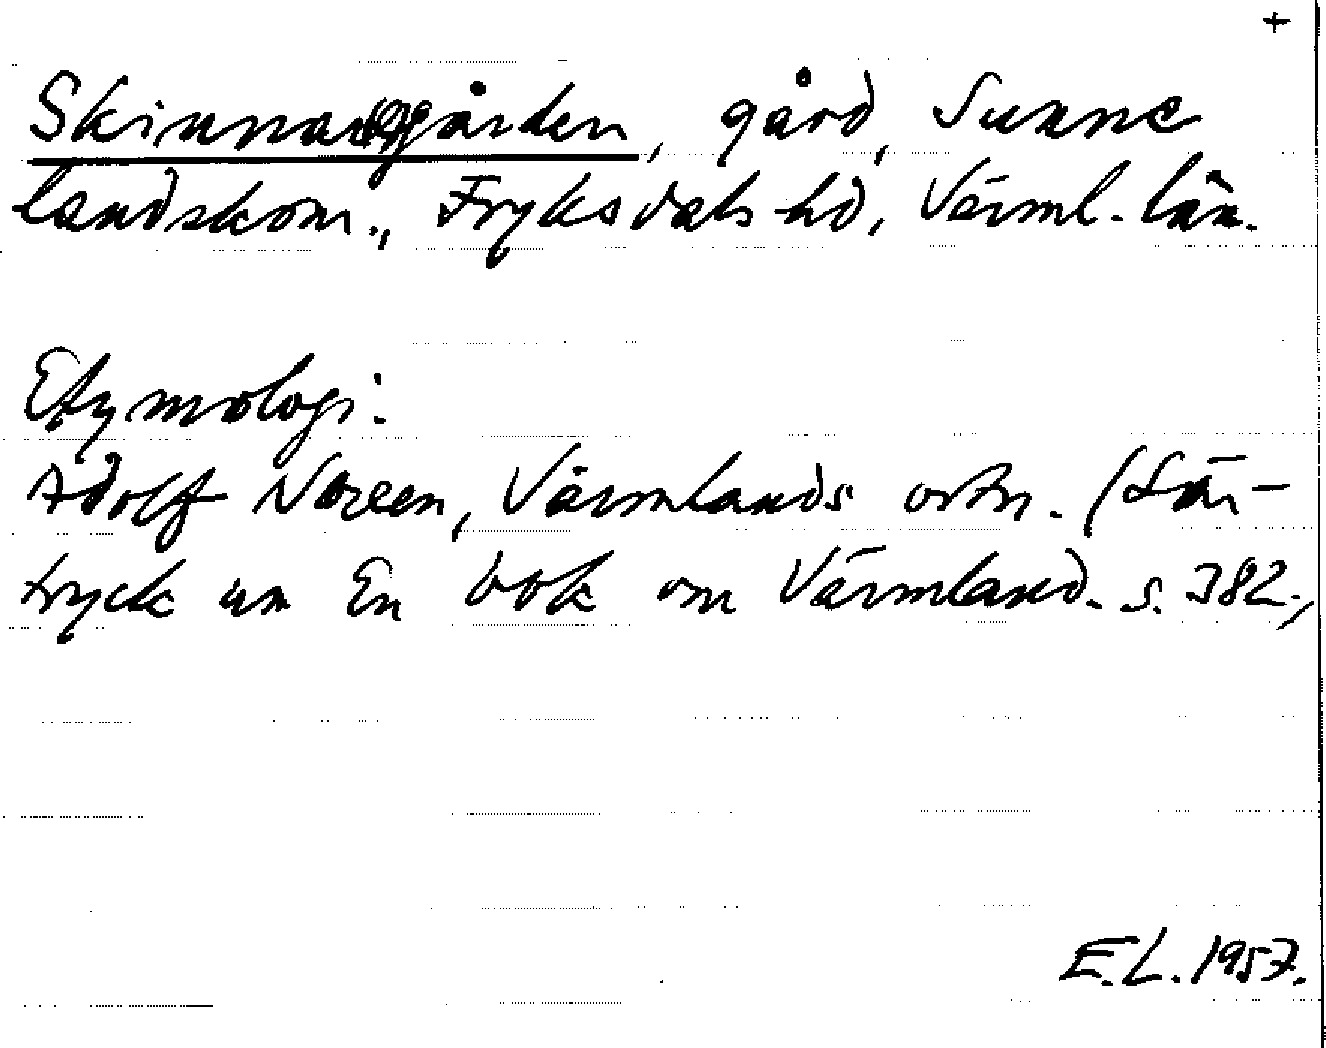 +
Skinnargården, gård, Sunne
landskom., Fryksdals hd, Värml. län.
Etymologi:
Adolf Noreen, Värmlands ortn. (Sär-
tryck ur En bok om Värmland. s. 382.)
E.L. 1957.